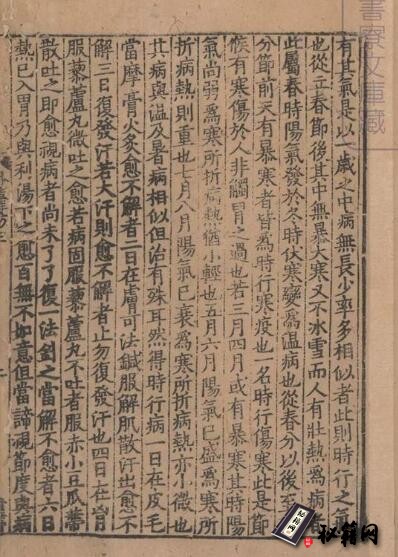 有其氣是以一歲之中病無長少率多相似者此則時行之氣
也從立春節後其中無暴大寒又不水雪而人有壯熱為病
此屬春時陽氣發於冬時伏寒變為温病也從春分以後至
分節前天有暴寒者皆為時行寒疫也一名時行傷寒此是節
候有寒傷於人非觸冒之過也若三月四月或有暴寒其時陽
氣尚弱為寒所折病熱猶小輕也五月六月陽氣已盛為寒所
折病熱則重也七月八月陽氣已衰為寒所折病熱亦小微也
其病與温及暑病相似但治有殊耳然得時行病一日在皮毛
當摩膏火灸愈不解者二日在膚可法鍼服解肌散汗出愈不
解三日復發汗若大汗則愈不解者止勿復發汗也四日在胷
服藜蘆丸微吐之愈若病固服藜蘆丸不吐者服赤小豆瓜蔕
散吐之即愈視病者尚未了了復一法鍼之當解不愈者六日
熱已入胃乃與利湯下之愈百無不如意但當諦視節度與病
書寮文庫藏
秘籍网